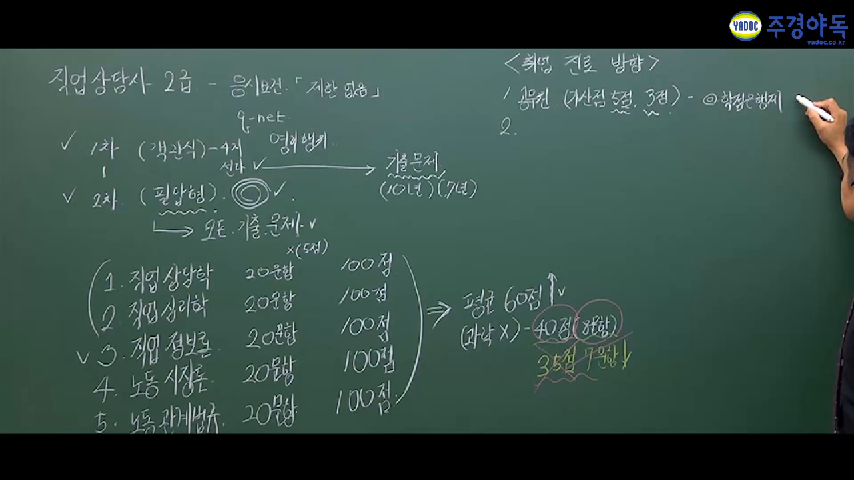 YADOC 주경야독
yadoc.co.kr
직업상담사 2급 - 응시요건 「제한 없음」
q-net
✓ 1차 (객관식) - 4지 선다 ✓ → 기출문제
✓ 2차 (필답형). ✓ (10년) (7년)
→ 모두. 기출.문제 ✓
×(5점)
1. 직업상담학 20문항 100점
2. 직업심리학 20문항 100점
✓ 3. 직업정보론 20문항 100점
4. 노동시장론 20문항 100점
5. 노동관계법규 20문항 100점
⇒ 평균 60점 ↑ ✓
(과락 X) - 40점 (8문항)
35점 7문항 ↓
<취업 진로 방향>
1. 공무원 (가산점 5점, 3점) - ◎ 학점은행제
2.